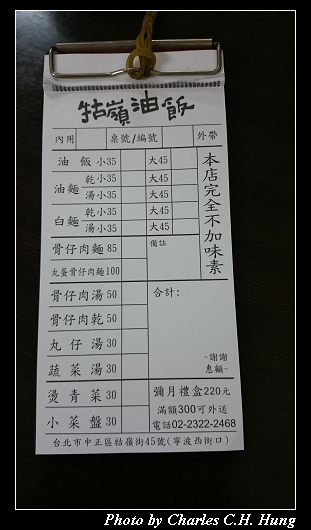 牯嶺油飯
內用 桌號/編號 外帶
油飯 小35 大45
油麵 乾小35 大45
湯小35 大45
白麵 乾小35 大45
湯小35 大45
本店完全不加味素
骨仔肉麵 85 備註
丸蛋骨仔肉麵100
骨仔肉湯 50 合計:
骨仔肉乾 50
丸仔湯 30
蔬菜湯 30
~謝謝
惠顧~
燙青菜 30 彌月禮盒220元
小菜盤 30 滿額300可外送
電話02-2322-2468
台北市中正區牯嶺街45號(寧波西街口)
Photo by Charles C.H. Hung